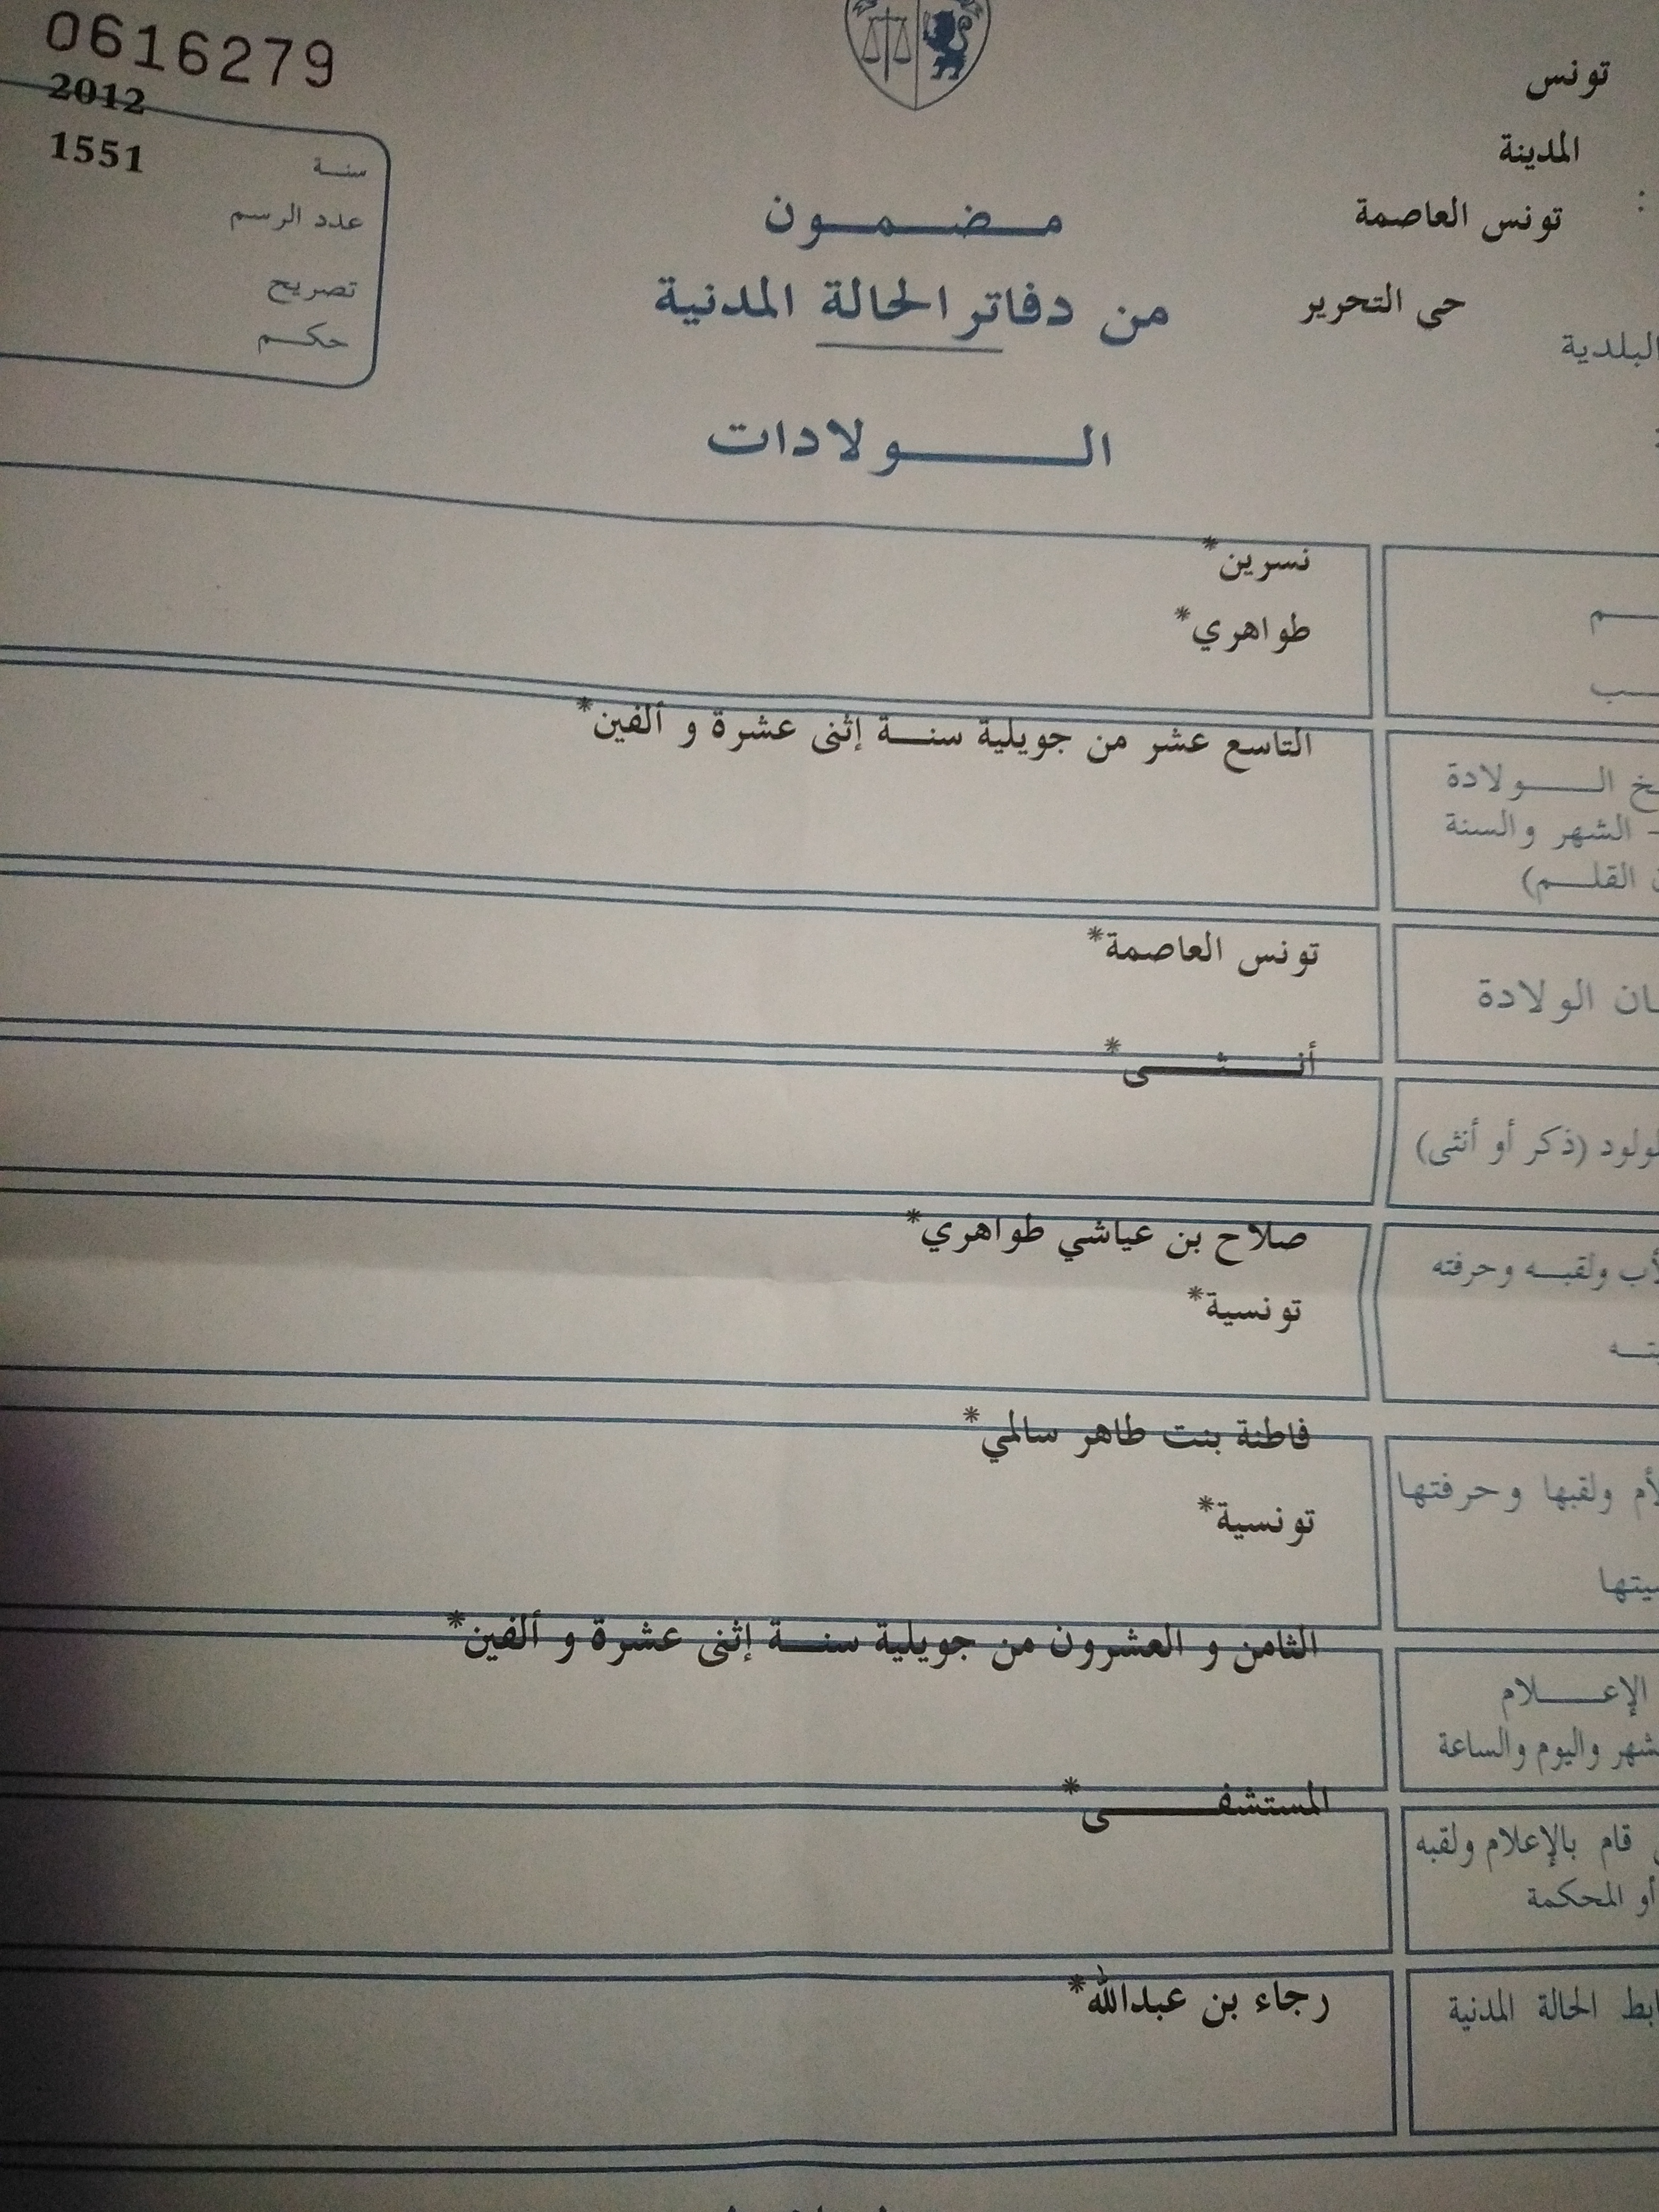 0616279
2012
1551
سنة
عدد الرسم
تصريح
حكم
تونس
المدينة
تونس العاصمة
حى التحرير
البلدية
مضمون
من دفاتر الحالة المدنية
الولادات
نسرين*
طواهري*
التاسع عشر من جويلية سنة إثنى عشرة و ألفين*
الولادة
- الشهر والسنة
القلم)
تونس العاصمة*
الولادة
أنثى*
(ذكر أو أنثى)
صلاح بن عياشي طواهري*
ولقبه وحرفته
تونسية*
فاطنة بنت طاهر سالمي*
ولقبها وحرفتها
تونسية*
الثامن و العشرون من جويلية سنة إثنى عشرة و ألفين*
الإعلام
واليوم والساعة
المستشفى*
قام بالإعلام ولقبه
أو المحكمة
رجاء بن عبدالله*
الحالة المدنية